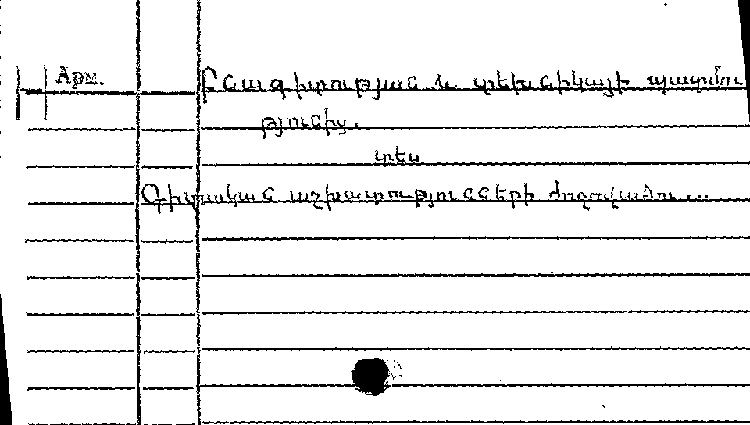 Հբտ.
Բնագիտության և տեխնիկայի պատմու
թյունից.
տես
Գիտական աշխատությունների ժողովածու...